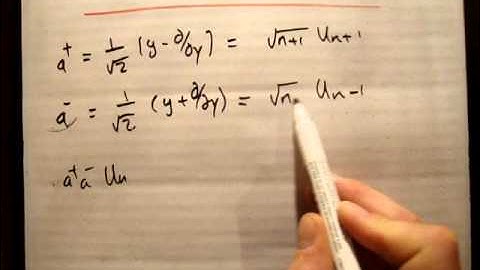 a⁺ = 1/√2 (y - ∂/∂y) = √n+1 Uₙ₊₁
a⁻ = 1/√2 (y + ∂/∂y) = √n Uₙ₋₁
a⁺ a⁻ Uₙ